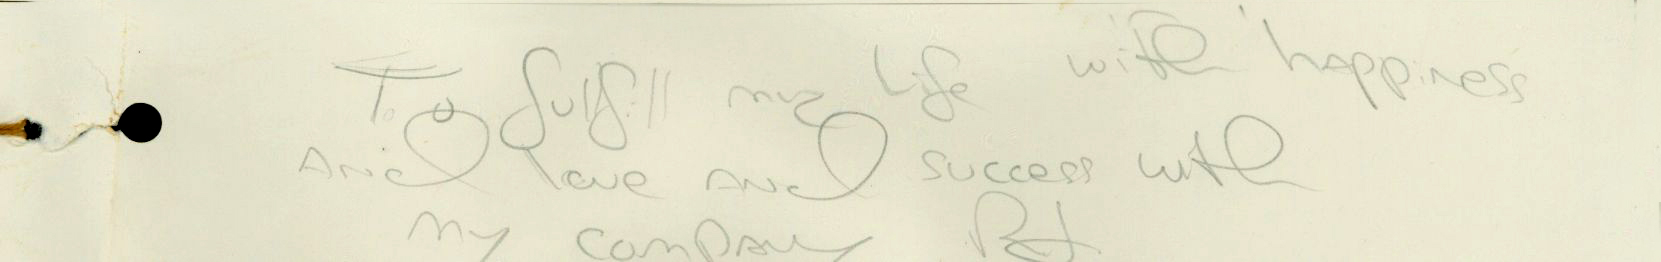 To fulfill my Life with happiness
And love and success with
My company